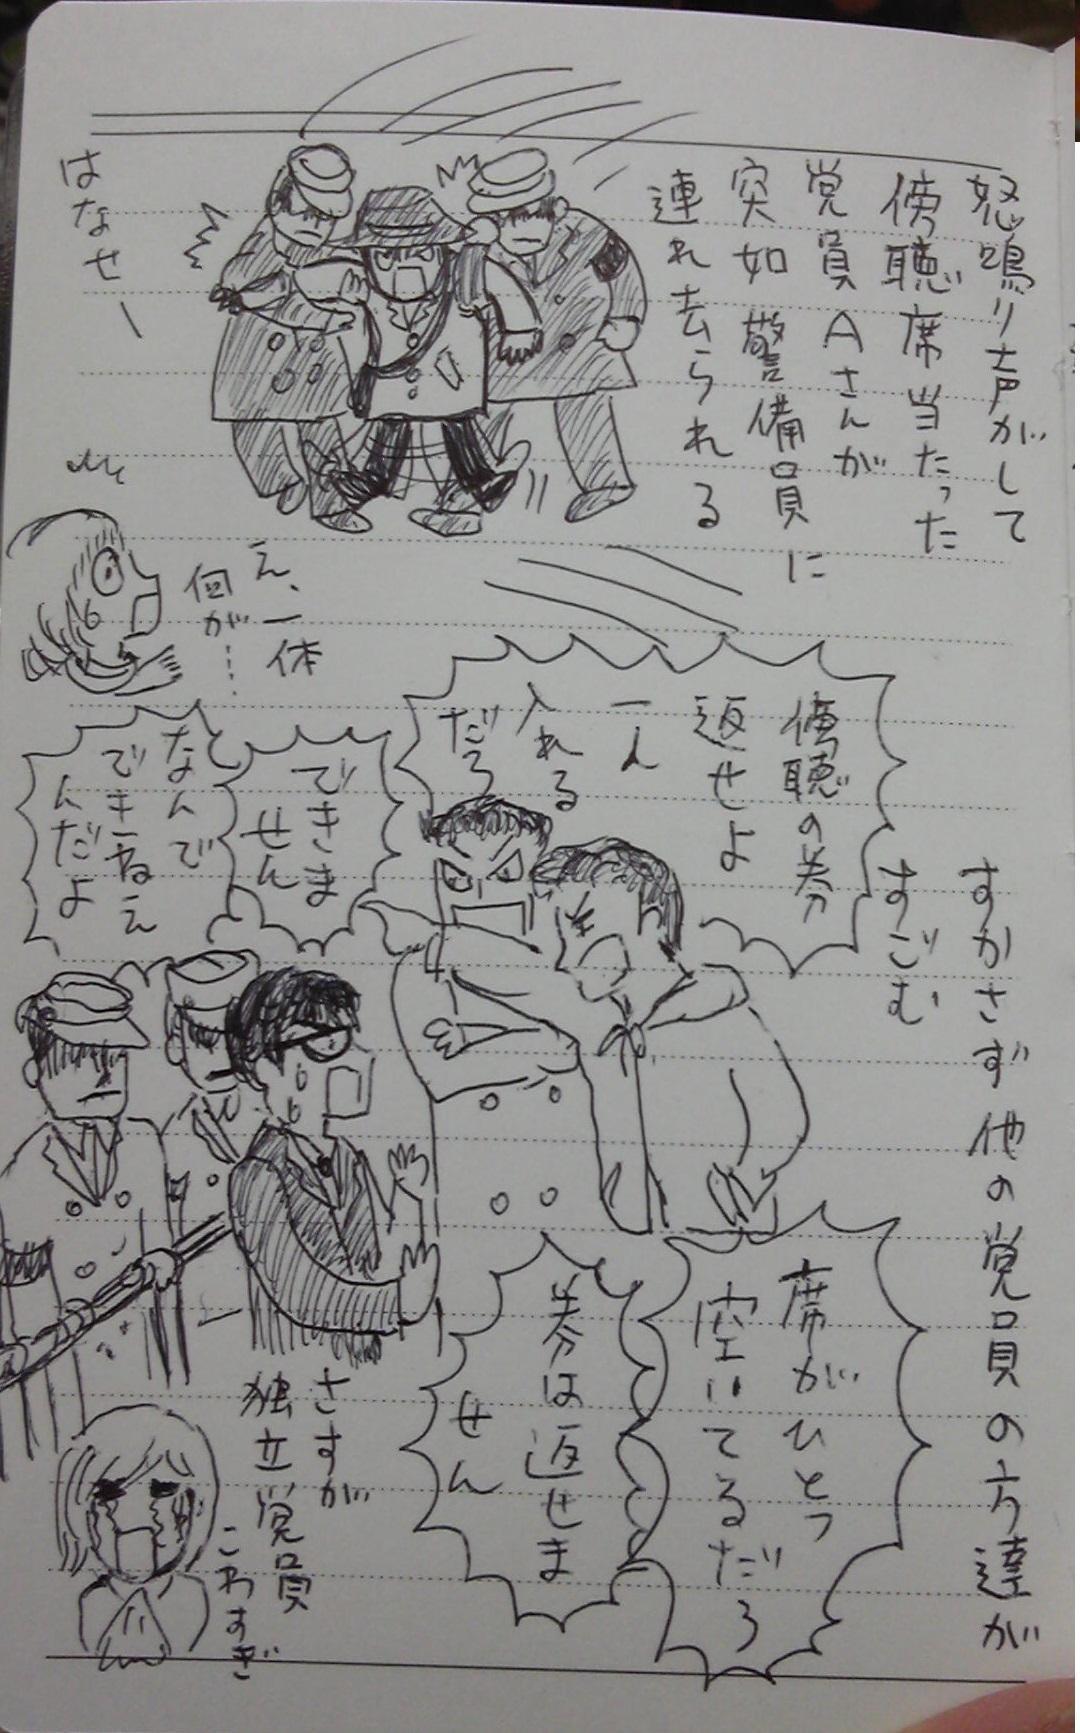 怒鳴り声がして
傍聴席当たった
党員Aさんが
突如警備員に
連れ去られる
はなせー
え、一体
何が…
すかさず他の党員の方達が
すごむ
傍聴の券
返せよ
一人
入れる
だろ
できま
せん
なんで
できねえ
んだよ
席がひとつ
空いてるだろ
券は返せま
せん
さすが
独立党員
こわすぎ